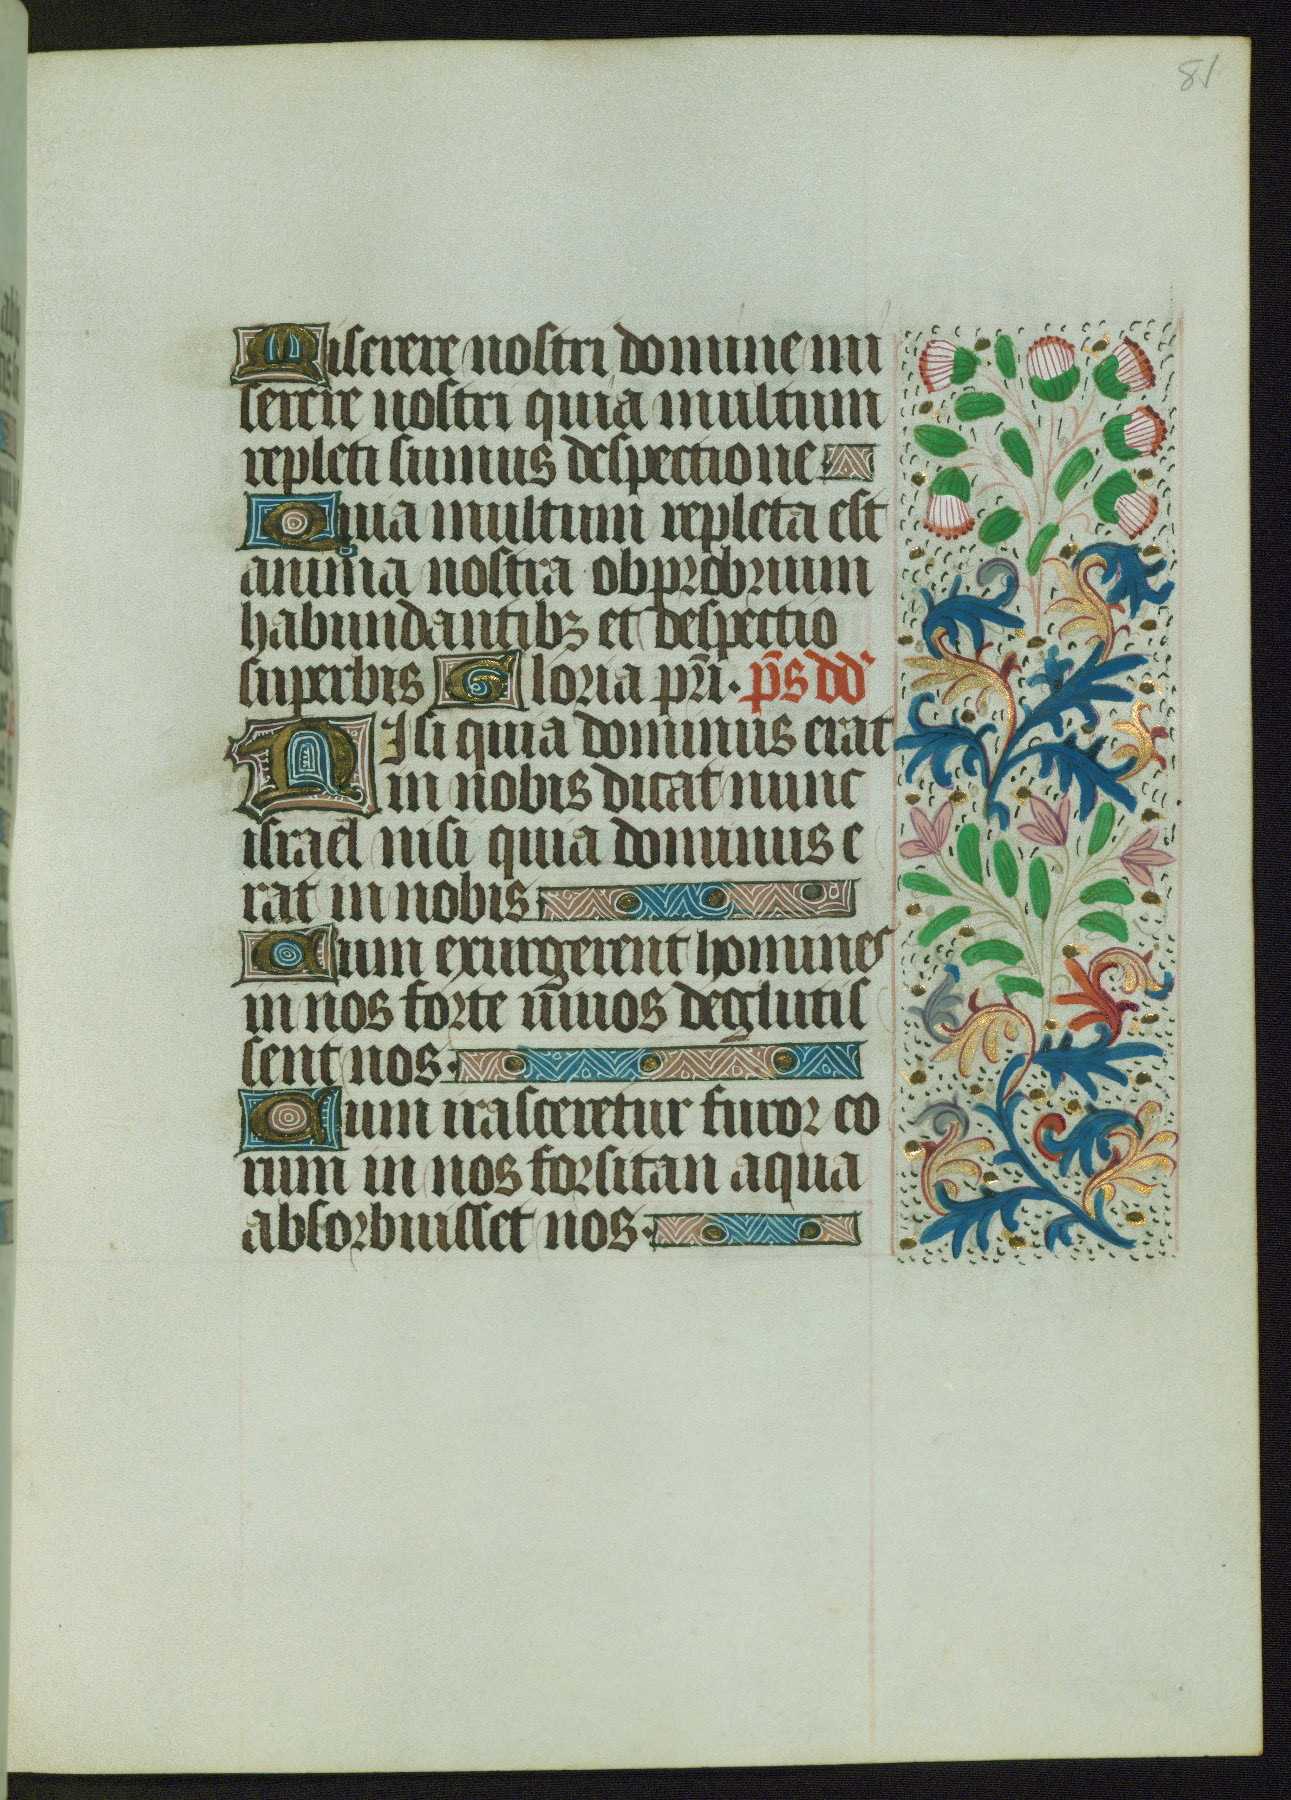 81
Miserere nostri domine mi
serere nostri quia multum
repleti sumus despectione
Quia multum repleta est
anima nostra obprobrium
habundantibꝫ et despectio
superbis Gloria pr̄i· p̄s dd'
Nisi quia dominus erat
in nobis dicat nunc
israel nisi quia dominus e
rat in nobis·
Cum exurgerent homines
in nos forte uīuos deglutis
sent nos·
Cum irasceretur furor eo
rum in nos forsitan aqua
absorbuisset nos·